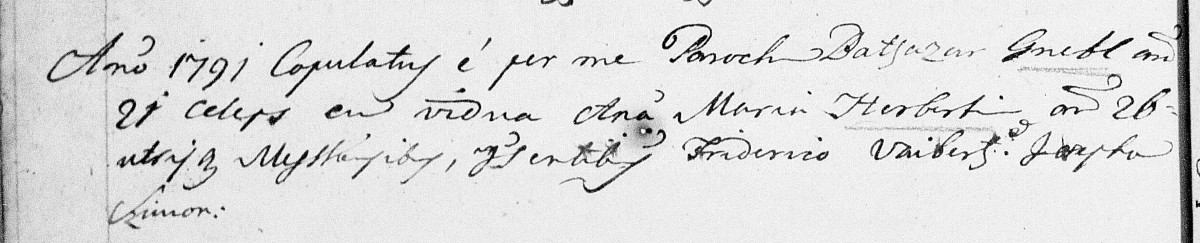 Ano 1791 Copulatus é per me Paroch Batsazar Gnebl an̄
21 Celeps cu vidua Ana Maria Herbertin an̄ 26
utrisq Mysskensibus, psentibus Friderico Vaibert, Josepho
Czimon: